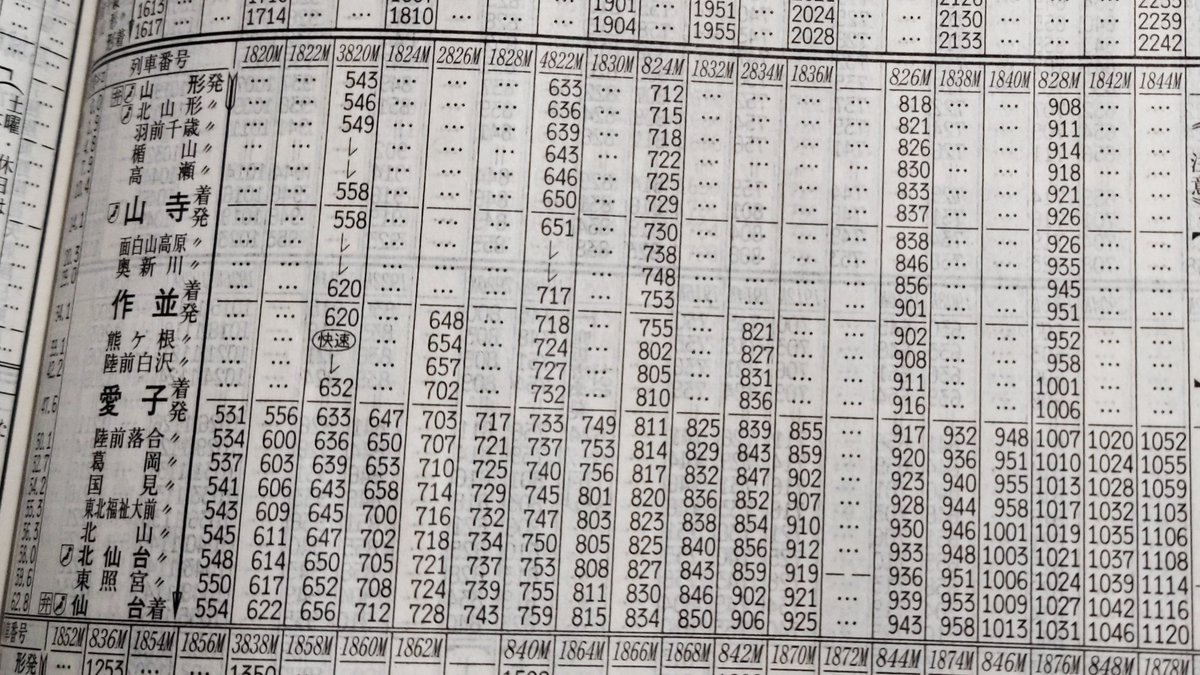 1613 … 1901 1951 2024 2130 2239
1617 1714 1810 1904 1955 2028 2133 2242
列車番号 1820M 1822M 3820M 1824M 2826M 1828M 4822M 1830M 824M 1832M 2834M 1836M 826M 1838M 1840M 828M 1842M 1844M
山形発 … … 543 … … … 633 … 712 … … … 818 … … 908 … …
北山形〃 … … 546 … … … 636 … 715 … … … 821 … … 911 … …
羽前千歳〃 … … 549 … … … 639 … 718 … … … 826 … … 914 … …
楯山〃 … … レ … … … 643 … 722 … … … 830 … … 918 … …
高瀬〃 … … レ … … … 646 … 725 … … … 833 … … 921 … …
山寺着 … … 558 … … … 650 … 729 … … … 837 … … 926 … …
発 … … 558 … … … 651 … 730 … … … 838 … … 926 … …
面白山高原〃 … … レ … … … レ … 738 … … … 846 … … 935 … …
奥新川〃 … … レ … … … レ … 748 … … … 856 … … 945 … …
作並着 … … 620 … … … 717 … 753 … … … 901 … … 951 … …
発 … … 620 … 648 … 718 … 755 … 821 … 902 … … 952 … …
熊ケ根〃 … … 快速 … 654 … 724 … 802 … 827 … 908 … … 958 … …
陸前白沢〃 … … レ … 657 … 727 … 805 … 831 … 911 … … 1001 … …
愛子着 … … 632 … 702 … 732 … 810 … 836 … 916 … … 1006 … …
発 531 556 633 647 703 717 733 749 811 825 839 855 … 917 932 948 1007 1020 1052
陸前落合〃 534 600 636 650 707 721 737 753 814 829 843 859 … 920 936 951 1010 1024 1055
葛岡〃 537 603 639 653 710 725 740 756 817 832 847 902 … 923 940 955 1013 1028 1059
国見〃 541 606 643 658 714 729 745 801 820 836 852 907 … 928 944 958 1017 1032 1103
東北福祉大前〃 543 609 645 700 716 732 747 803 823 838 854 910 … 930 946 1001 1019 1035 1106
北山〃 545 611 647 702 718 734 750 805 825 840 856 912 … 933 948 1003 1021 1037 1108
北仙台〃 548 614 650 705 721 737 753 808 827 843 859 919 — — 936 951 1006 1024 1039 1114
東照宮〃 550 617 652 708 724 739 755 811 830 846 902 921 … 939 953 1009 1027 1042 1116
弁 仙台着 554 622 656 712 728 743 759 815 834 850 906 925 … 943 958 1013 1031 1046 1120
車番号 1852M 836M 1854M 1856M 3838M 1858M 1860M 1862M 840M 1864M 1866M 1868M 842M 1870M 1872M 844M 1874M 846M 1876M 848M 1878M
形発 … 1253 … … 1350